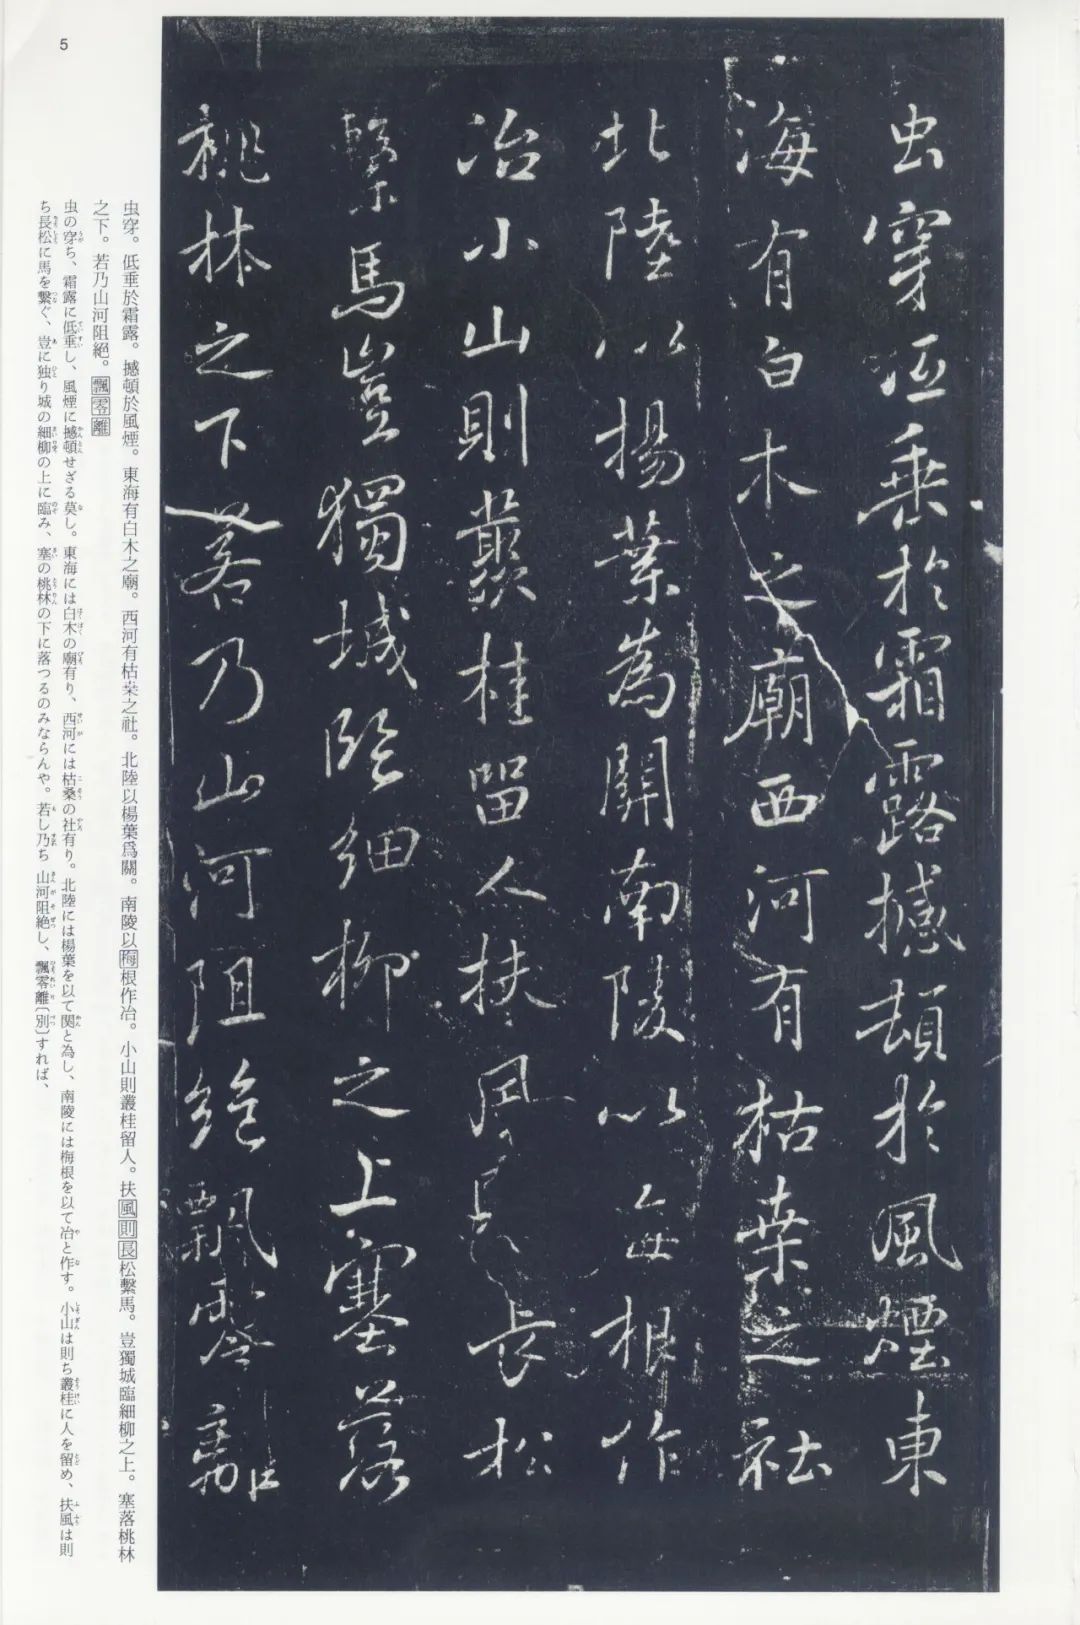 虫穿低垂於霜露撼頓於風煙東
海有白木之廟西河有枯桒之社
北陸以揚葉為關南陵以每根作
冶小山則叢桂留人扶風長松
繫馬豈獨城臨細柳之上塞落
桃林之下若乃山河阻絶飄零離
虫穿。低垂於霜露。撼頓於風煙。東海有白木之廟。西河有枯桒之社。北陸以楊葉爲關。南陵以梅根作冶。小山則叢桂留人。扶風則長松繫馬。豈獨城臨細柳之上。塞落桃林
之下。若乃山河阻絶。飄零離
虫の穿ち、霜露に低垂し、風煙に撼頓せざる莫し。東海には白木の廟有り、西河には枯桑の社有り。北陸には楊葉を以て関と為し、南陵には梅根を以て冶と作す。小山は則ち叢桂に人を留め、扶風は則
ち長松に馬を繫ぐ、豈に独り城の細柳の上に臨み、塞の桃林の下に落つるのみならんや。若し乃ち 山河阻絶し、飄零離〔別〕すれば、
5